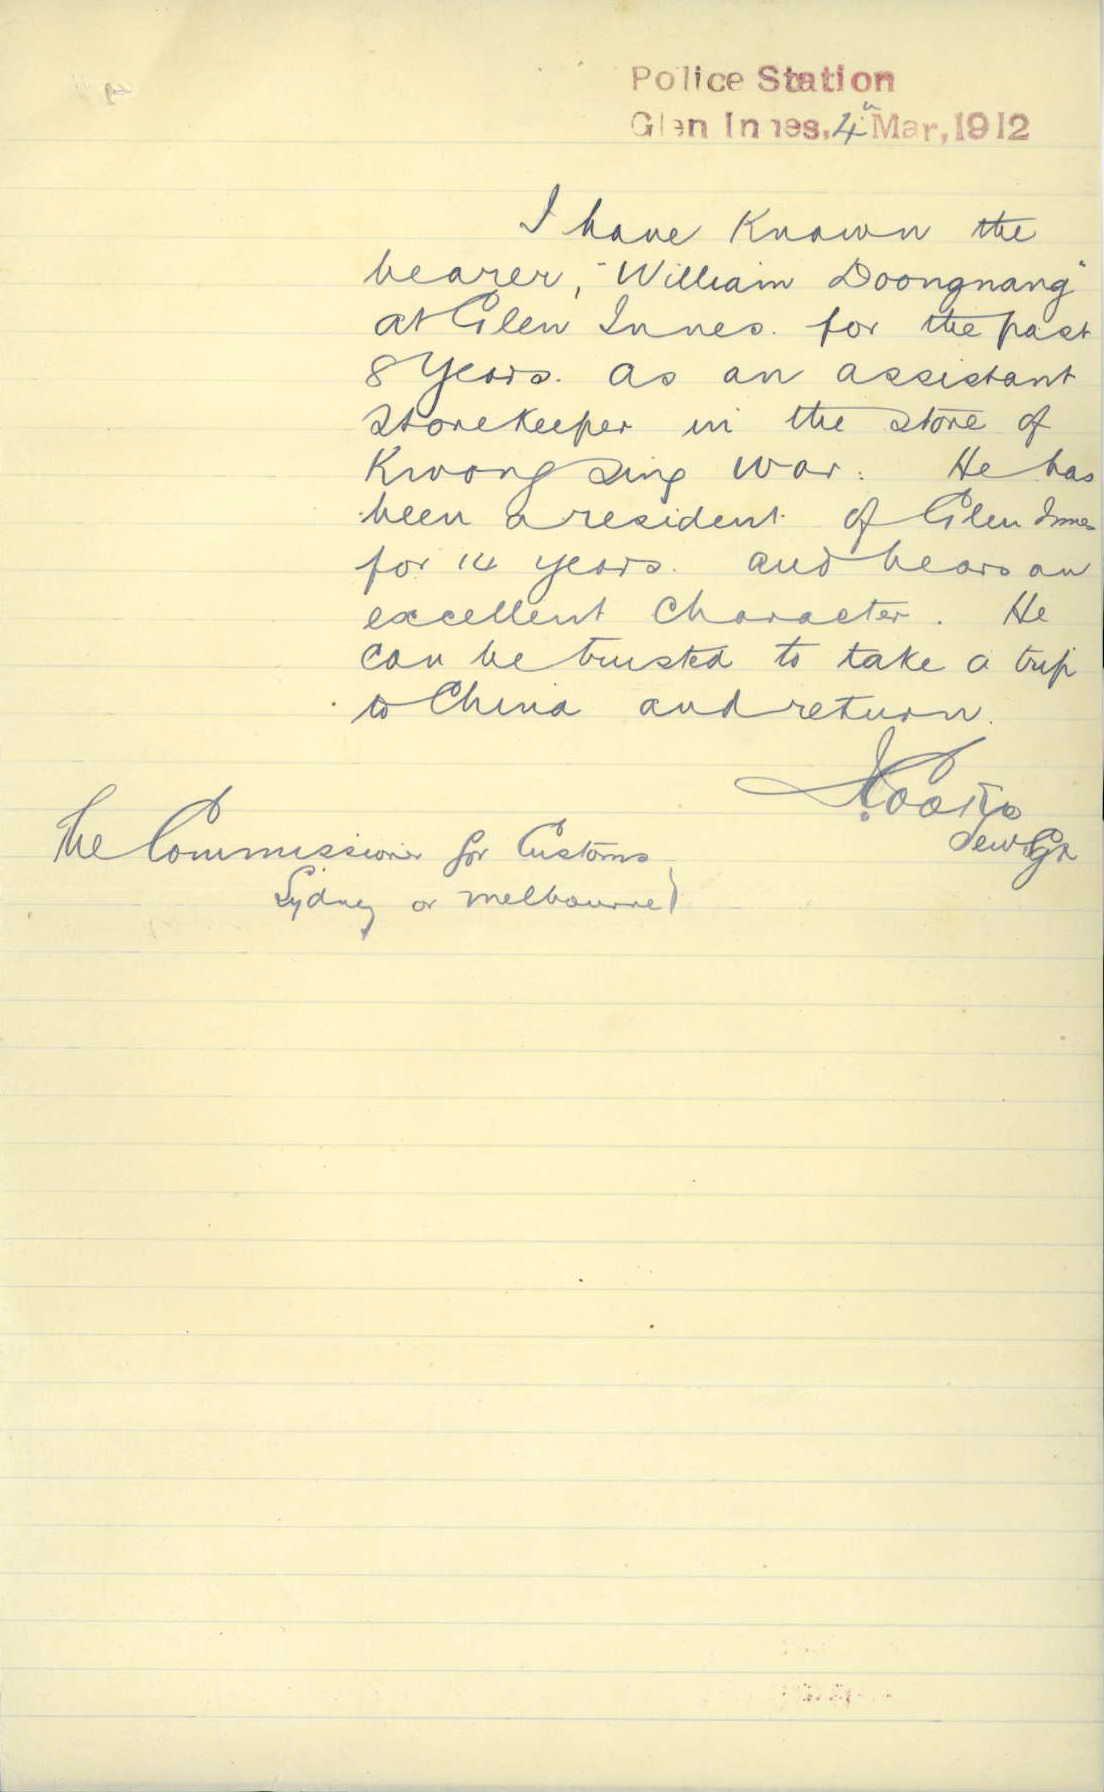 Police Station
Glen Innes, 4th Mar, 1912
I have Known the
bearer, "William Doongnang"
at Glen Innes. for the past
8 Years. as an assistant
Storekeeper in the store of
Kwong Sing War. He has
been a resident of Glen Innes
for 14 years. and bears an
excellent Character. He
can be trusted to take a trip
to China and return.
The Commissioner for Customs
Sydney or Melbourne